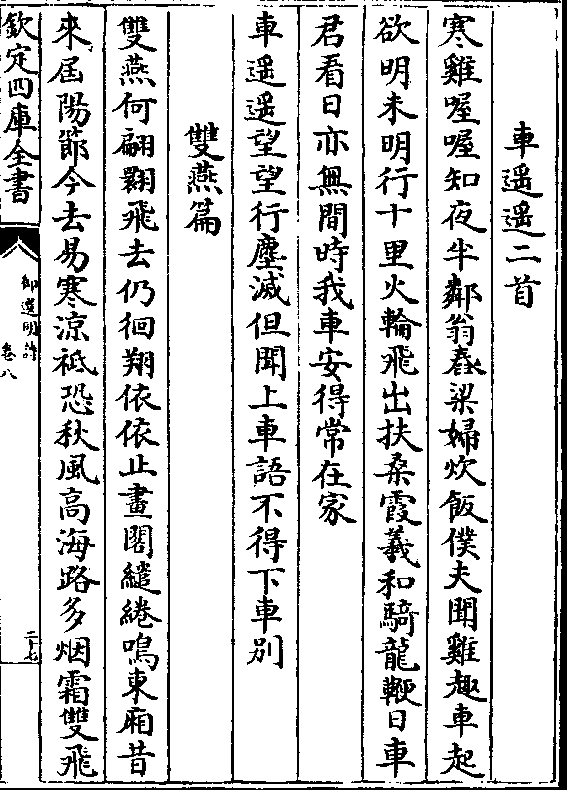 車遥遥二首
寒雞喔喔知夜半鄰翁舂梁婦炊飯僕夫聞雞趣車起
欲明未明行十里火輪飛出扶桑霞羲和騎龍鞭日車
君看日亦無閒時我車安得常在家
車遥遥望望行塵滅但聞上車語不得下車别
雙燕篇
雙燕何翩翾飛去仍徊翔依依止畫閣繾綣鳴東廂昔
來届陽節今去易寒凉祗恐秋風高海路多烟霜雙飛
欽定四庫全書
御選明詩
卷八
二十七